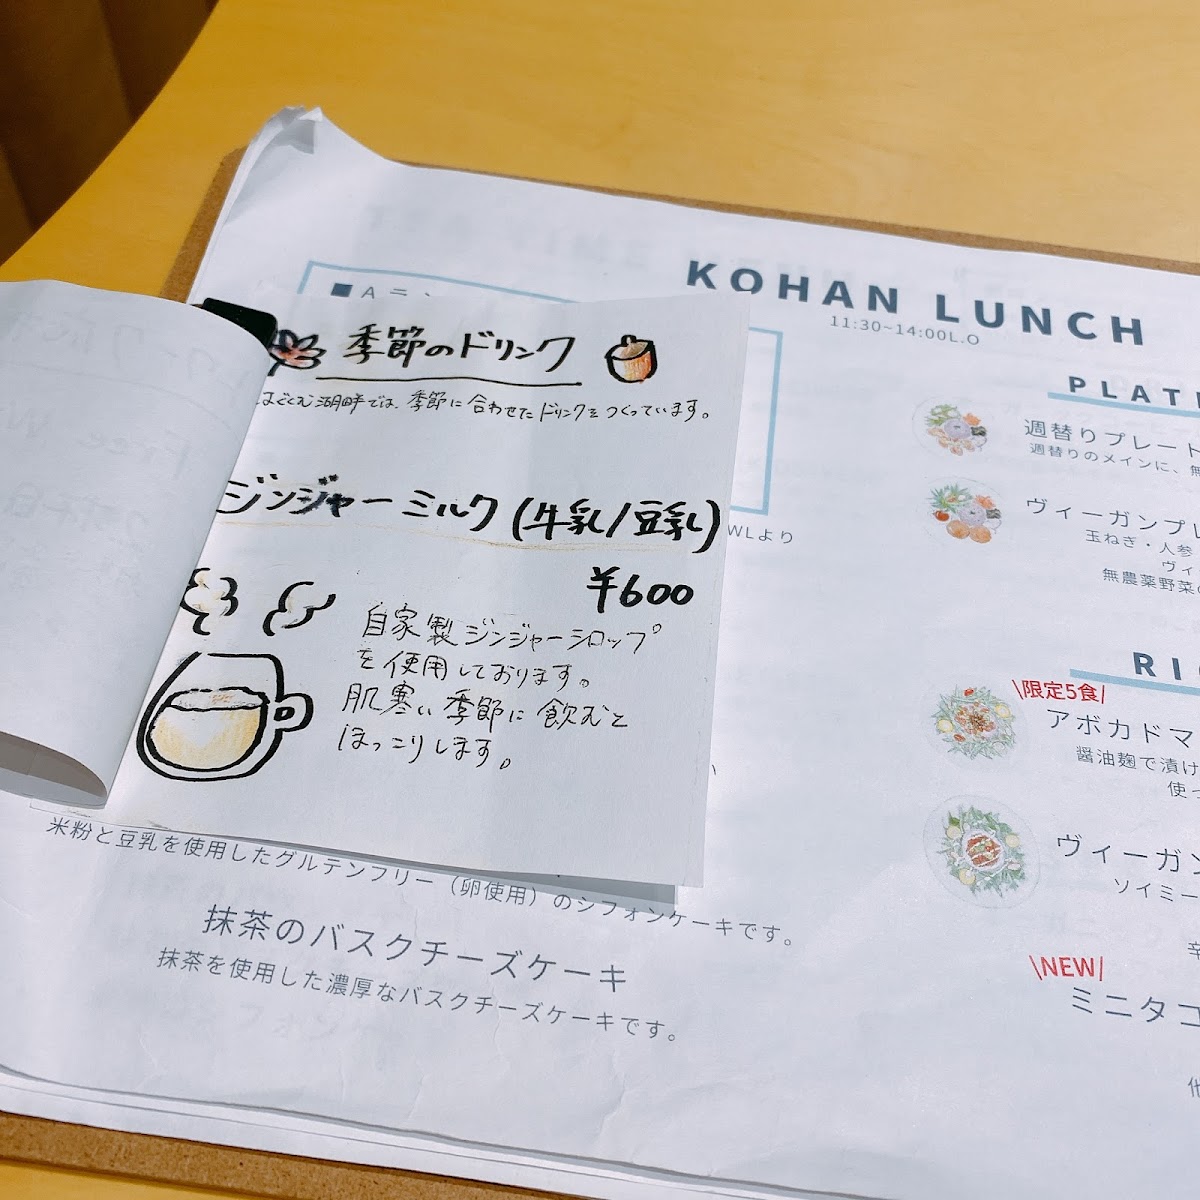 KOHAN LUNCH
11:30~14:00L.O
■Aラン
季節のドリンク
はぐくむ湖畔では、季節に合わせたドリンクをつくっています。
ジンジャーミルク(牛乳/豆乳)
¥600
自家製ジンジャーシロップ
を使用しております。
肌寒い季節に飲むと
ほっこりします。
WLより
米粉と豆乳を使用したグルテンフリー(卵使用)のシフォンケーキです。
抹茶のバスクチーズケーキ
抹茶を使用した濃厚なバスクチーズケーキです。
PLAT
週替りプレート
週替りのメインに、無
ヴィーガンプレ
玉ねぎ・人参
ヴィ
無農薬野菜の
RI
\限定5食/
アボカドマ
醤油麹で漬け
使っ
ヴィーガン
ソイミー
辛
\NEW/
ミニタコ
他